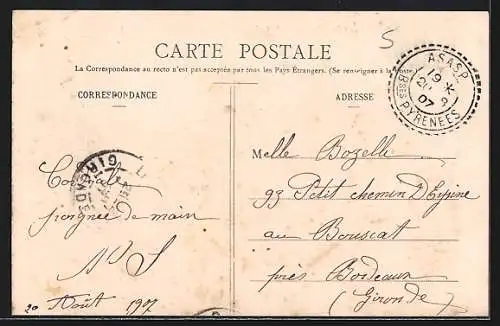 5
CARTE POSTALE
La Correspondance au recto n'est pas acceptée par tous les Pays Étrangers. (Se renseigner à la Poste.)
CORRESPONDANCE
ADRESSE
ASASP
19 *
07
Bses PYRÉNÉES
GIRONDE
Melle Bozelli
93 Petit chemin D'Espine
au Bouscat
près Bordeaux
(Gironde)
Cordiale
poignée de main
20 Août 1907